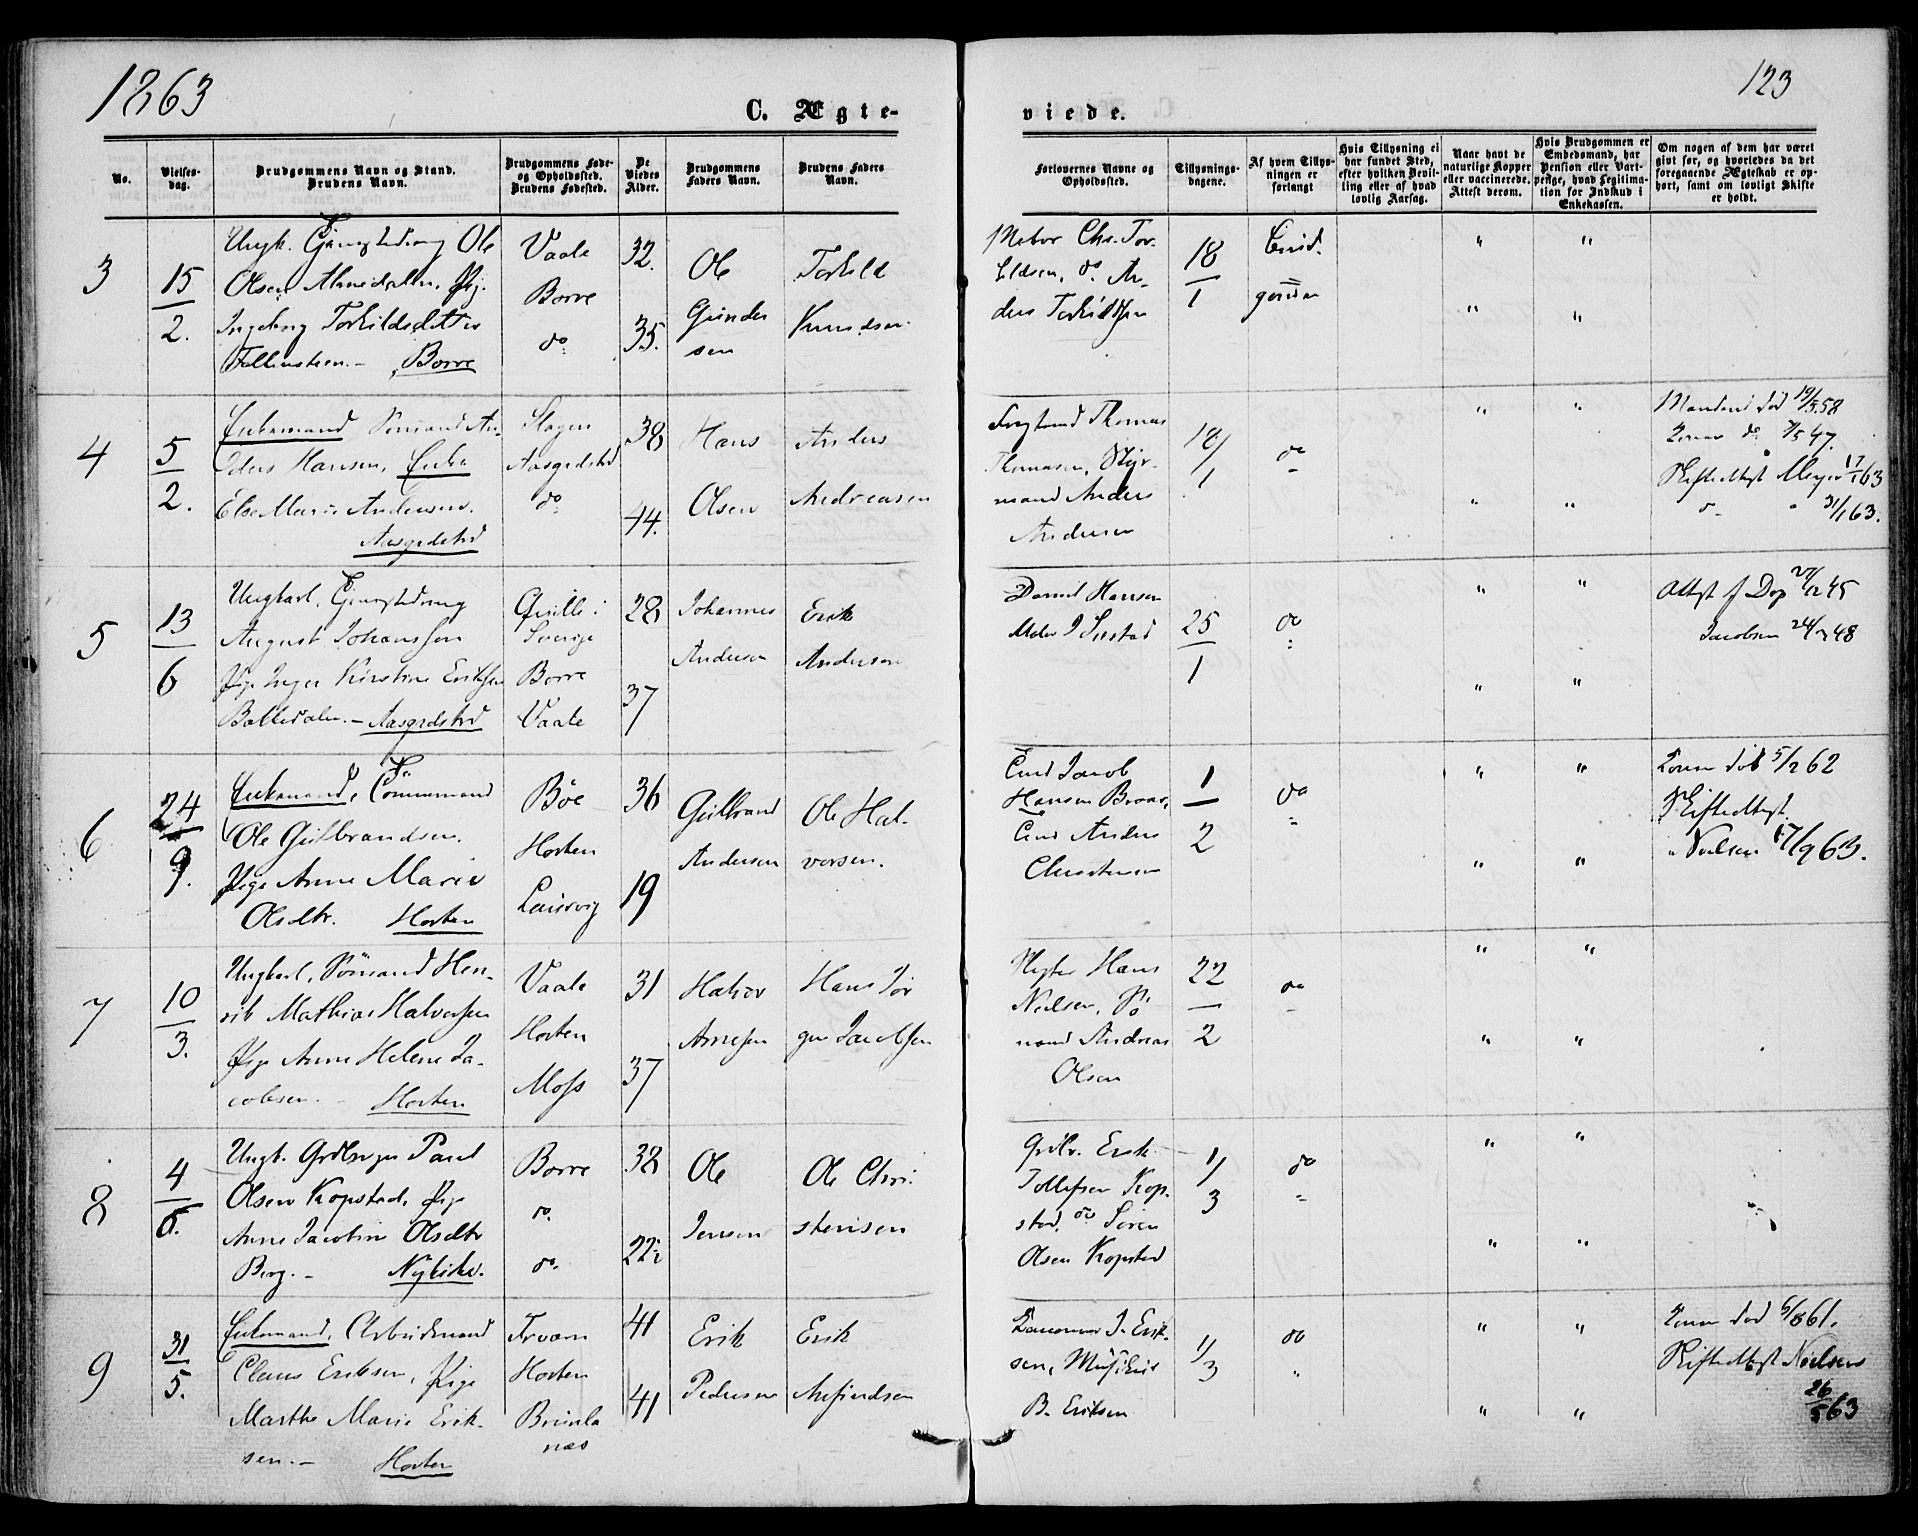 1863
123
C. Ægte-
viede.
No.
Vielses-
dag.
Brudgommens Navn og Stand.
Brudens Navn.
Brudgommens Føde-
og Opholdssted.
Brudens Fødested.
De
Viedes
Alder.
Brudgommens
Faders Navn.
Brudens Faders
Navn.
Forlovernes Navne og
Opholdssted.
Tillysnings-
dagene.
Af hvem Tillys-
ningen er
forlangt
Hvis Tillysning ei
har fundet Sted,
efter hvilken Bevil-
ling eller af hvad
lovlig Aarsag.
Naar havt de
naturlige Kopper
eller vaccinerede.
Attest derom.
Hvis Brudgommen er
Embedsmand, har
Pension eller Vart-
penge, hvad Legitima-
tion for Indskud i
Enkekassen.
Om nogen af dem har været
givt før, og hvorledes da det
foregaaende Ægteskab er op-
hørt, samt om lovligt Skifte
er holdt.
3
15/2.
Ungk. Ole
Olsen
Ingeborg Torkildsdatter
Borre
Vaale
Borre
do
32.
35.
Ole
Gunder
sen
Torkild
Knudsen
Chr. Tor-
kildsen, do An-
ders Torkildsen
18/1
4
5/2.
Enkemand Sømand An-
ders Hansen, Enke
Else Marie Andersen.
Aasgrdstrd
Slagen
Aasgrdstrd
do
38
44.
Hans
Olsen
Anders
Andreasen
Thomas
Thomasen, Styr-
mand Anders
Andersen
18/1
do
Manden død 19/5 58
Konen do 7/5 47.
Skifteattest Meyer 17/1 63
31/1 63.
5
13/6
Ungkarl,
August Johanssen
Pige Inger Kirstine Eriksen
Bakkedalen. - Aasgrdstrd
Qville i
Sverige
Borre
Vaale
28
37
Johannes
Andersen
Erik
Andersen
Daniel Hansen
25/1
do
Attst f Dop 27/12 45
Jacobsen 24/3 48
6
24/9.
Enkemand, Tømmermand
Ole Gulbrandsen.
Pige Anne Marie
Olsdtr. Horten
Bøe
Horten
Laurvig
36
19
Gulbrand
Andersen
Ole Hal-
vorsen.
Jacob
Hansen
Anders
Christensen
1/2
do
Konen død 5/2 62
Skifteattest
Nielsen 17/9 63.
7
10/3.
Ungkarl, Sømand Hen-
rik Mathias Halvorsen
Pige Anne Helene Ja-
cobsen. - Horten
Vaale
Horten
Moss
31
37
Halvor
Arnesen
Hans Jør
gen Jacobsen
Hans
Nielsen, Sø
mand Andreas
Olsen
22/2
do
8
4/6.
Ungk. Grdbruger Paul
Olsen Kopstad, Pige
Anne Jacobine Olsdtr
Berg. - Nykirke.
Borre
do.
do.
38
22½
Ole
Jensen
Ole Chri-
stensen
Grdbr. Erik
Tollefsen Kop-
stad, do Søren
Olsen Kopstad
1/3
do
9
31/5.
Enkemand, Arbeidsmand
Claus Eriksen, Pige
Marthe Marie Erik-
sen. - Horten
Horten
Brunla
næs
41
41
Erik
Pedersen
Erik
J. Erik-
sen,
B. Eriksen
1/3
do
Konen død 6/8 61.
Skifteattest Nielsen
26/5 63